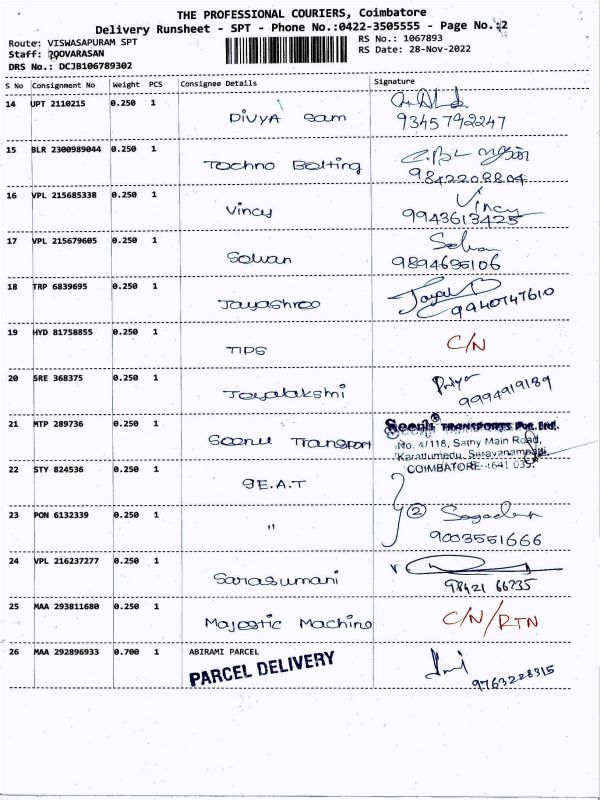 THE PROFESSIONAL COURIERS, Coimbatore
Delivery Runsheet - SPT - Phone No.:0422-3505555 - Page No.:2
Route: VISWASAPURAM SPT
RS No.: 1067893
Staff: POOVARASAN
RS Date: 28-Nov-2022
DRS No.: DCJB106789302
S No Consignment No Weight PCS Consignee Details Signature
14 UPT 2110215 0.250 1 Divya Sam
9345792247
15 BLR 2300989044 0.250 1 Techno Belting
9842208804
16 VPL 215685338 0.250 1 Vincy Vincy
9943613425
17 VPL 215679605 0.250 1 Selvan Selva
9894695106
18 TRP 6839695 0.250 1 Jayashree
9940747610
19 HYD 81758855 0.250 1 TIPS C/N
20 SRE 368375 0.250 1 Jeyalakshmi Priya
9994919189
21 MTP 289736 0.250 1 Seenu Transport Seenu TRANSPORTS Pvt. Ltd.
No. 4/118, Sathy Main Road,
Karattumedu, Saravanampatti,
COIMBATORE-641 035.
22 STY 824536 0.250 1 S.E.A.T
23 PON 6132339 0.250 1 " 2
9003551666
24 VPL 216237277 0.250 1 Sarasumani
98421 66735
25 MAA 293811680 0.250 1 Majestic Machine C/N/RTN
26 MAA 292896933 0.700 1 ABIRAMI PARCEL
PARCEL DELIVERY
9763228315